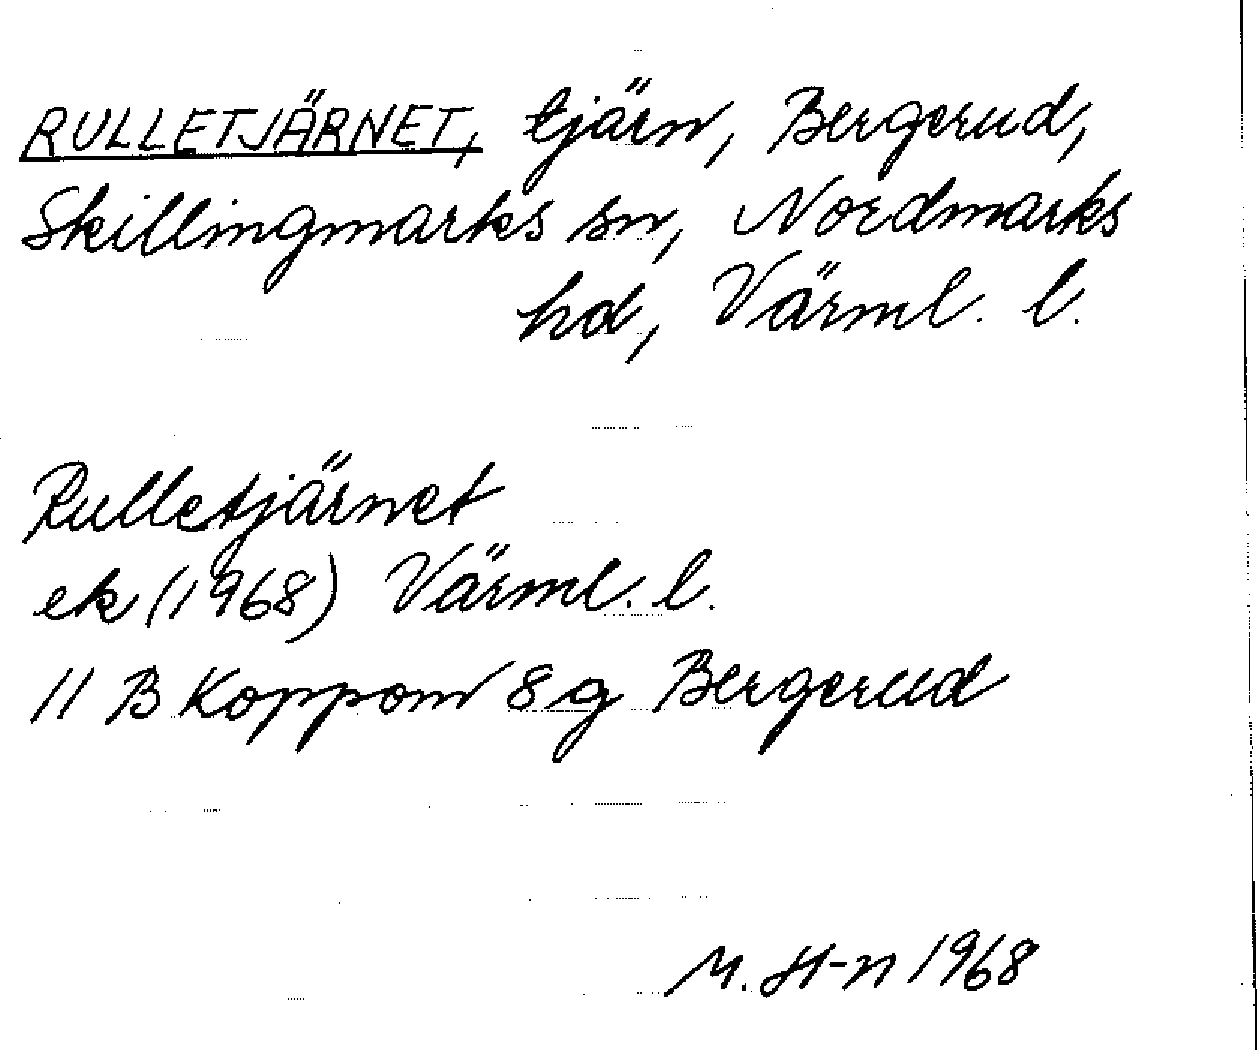 RULLETJÄRNET, tjärn, Bergerud,
Skillingmarks sn, Nordmarks
hd, Värml. l.
Rulletjärnet
ek (1968) Värml. l.
11 B Koppom 8 g Bergerud
M. H-n 1968